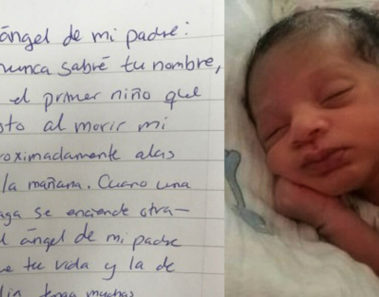 ángel de mi padre:
nunca sabré tu nombre,
el primer niño que
al morir mi
alas
la mañana. Cuano una
se enciende otra-
ángel de mi padre
tu vida y la de
muchas